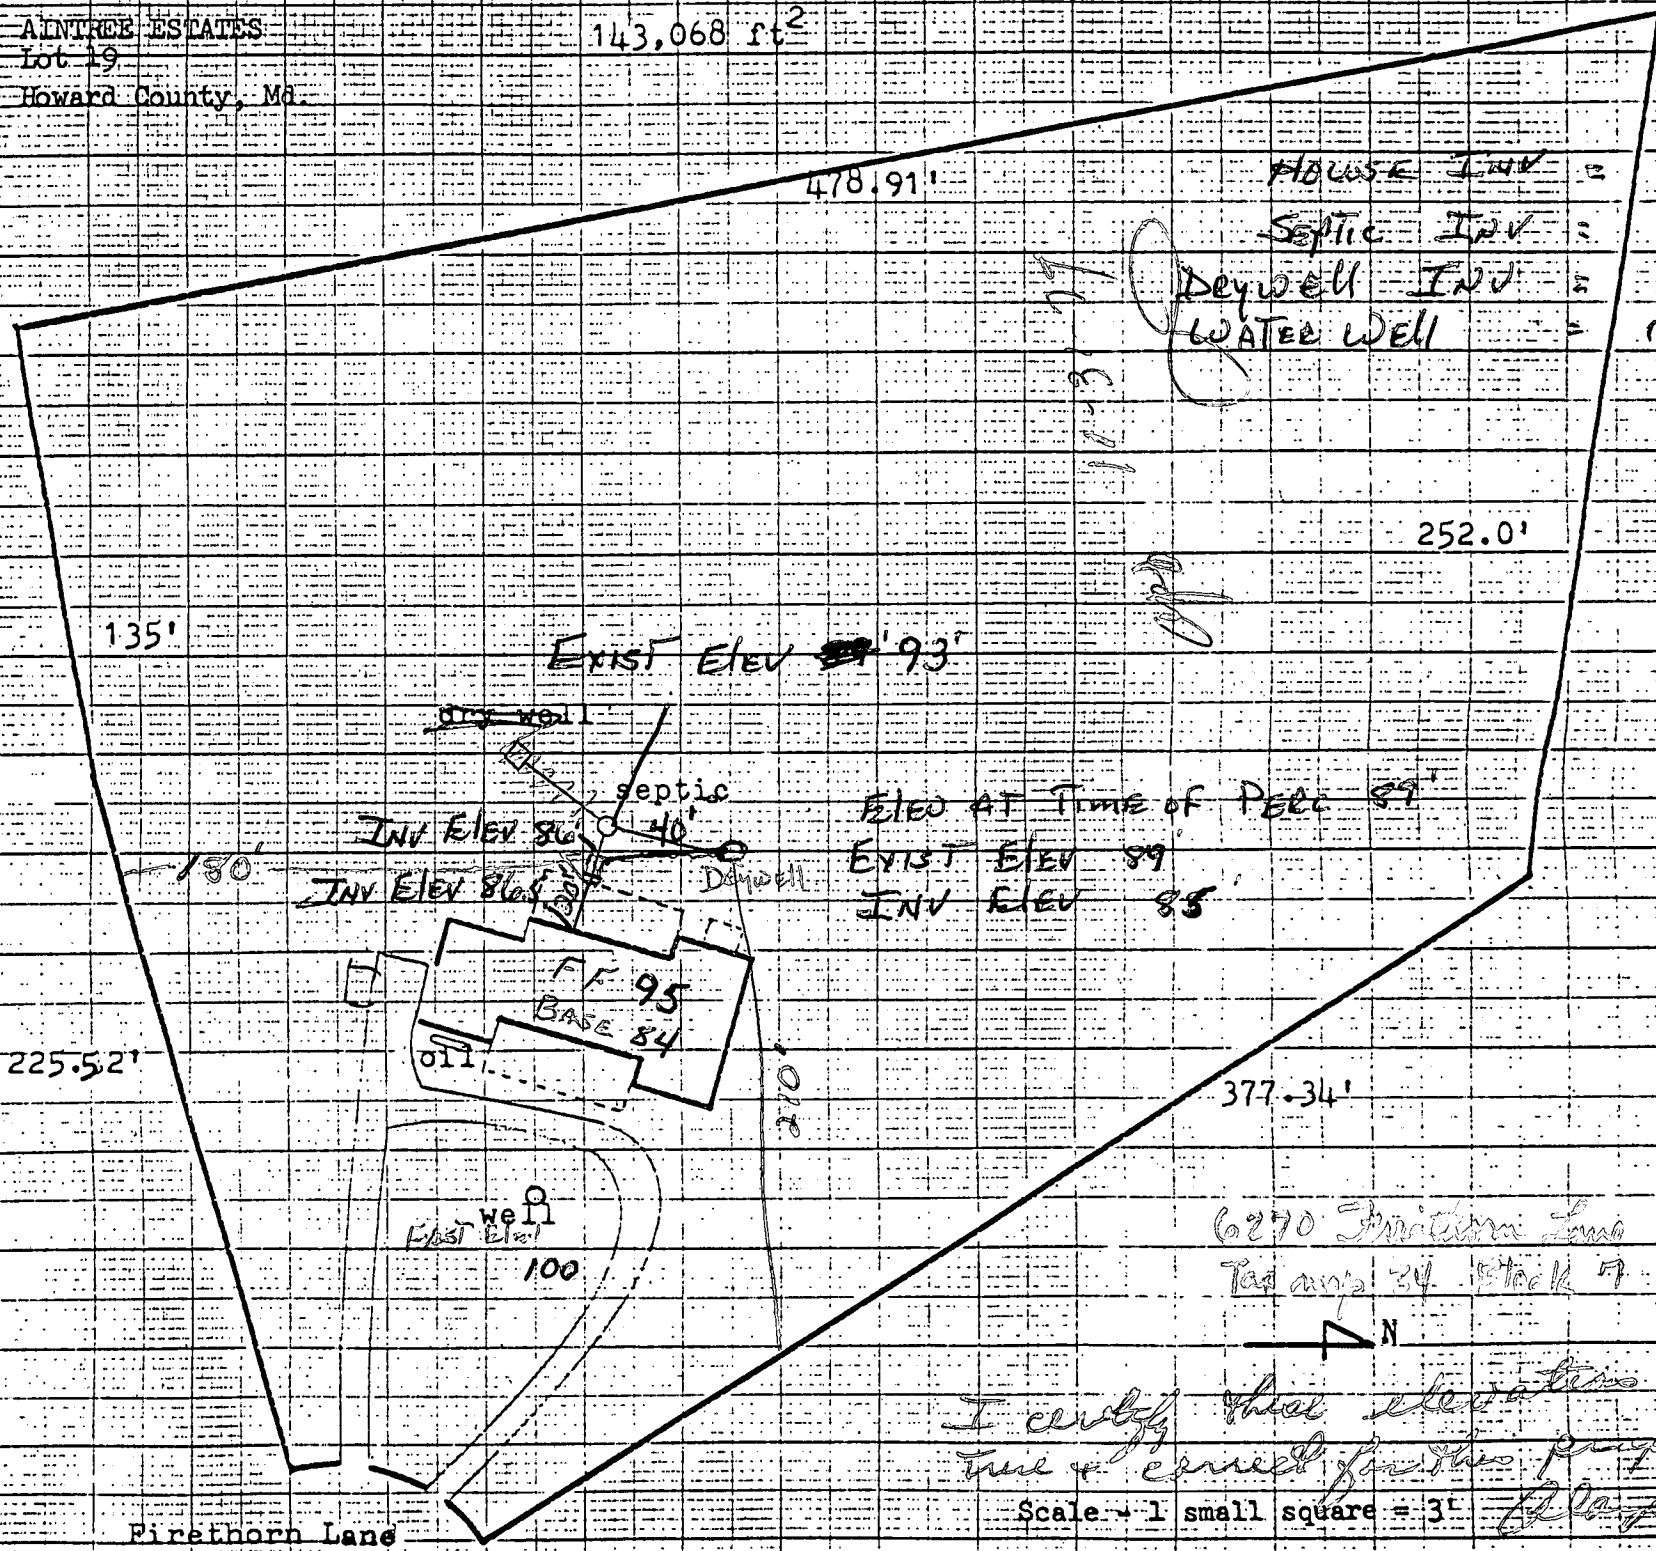 AINTREE ESTATES
Lot 19
Howard County, Md.
143,068 ft²
478.91'
HOUSE INV =
SEPTIC INV =
DRYWELL INV =
WATER WELL =
252.0'
135'
EXIST ELEV 93'
dry well
septic
INV ELEV 86'
40'
ELEV AT TIME OF PERC 89'
180'
Drywell
EXIST ELEV 89'
INV ELEV 86.5'
30'
INV ELEV 85'
FF 95
BASE 84
oil
225.52'
210'
377.34'
well
EXIST Elev
100
6270 Firethorn Lane
Tax map 34 Block 7
N
I certify these elevations
true + correct for this
Scale - 1 small square = 3'
Firethorn Lane